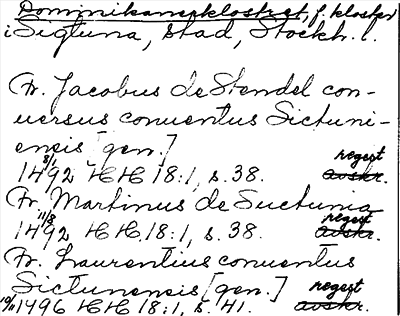 Dominikanerklostret, f. kloster
i Sigtuna, stad, Stockh. l.
Fr. Jacobus de Stendel con-
uersus conuentus Sictuni-
ensis [gen.] regest
8/1 1492 HH 18:1, s. 38. avskr.
Fr. Martinus de Suctunia
11/8 1492 HH 18:1, s. 38. regest avskr.
Fr. Laurentius conuentus
Sictunensis [gen.] regest
10/11 1496 HH 18:1, s. 41. avskr.